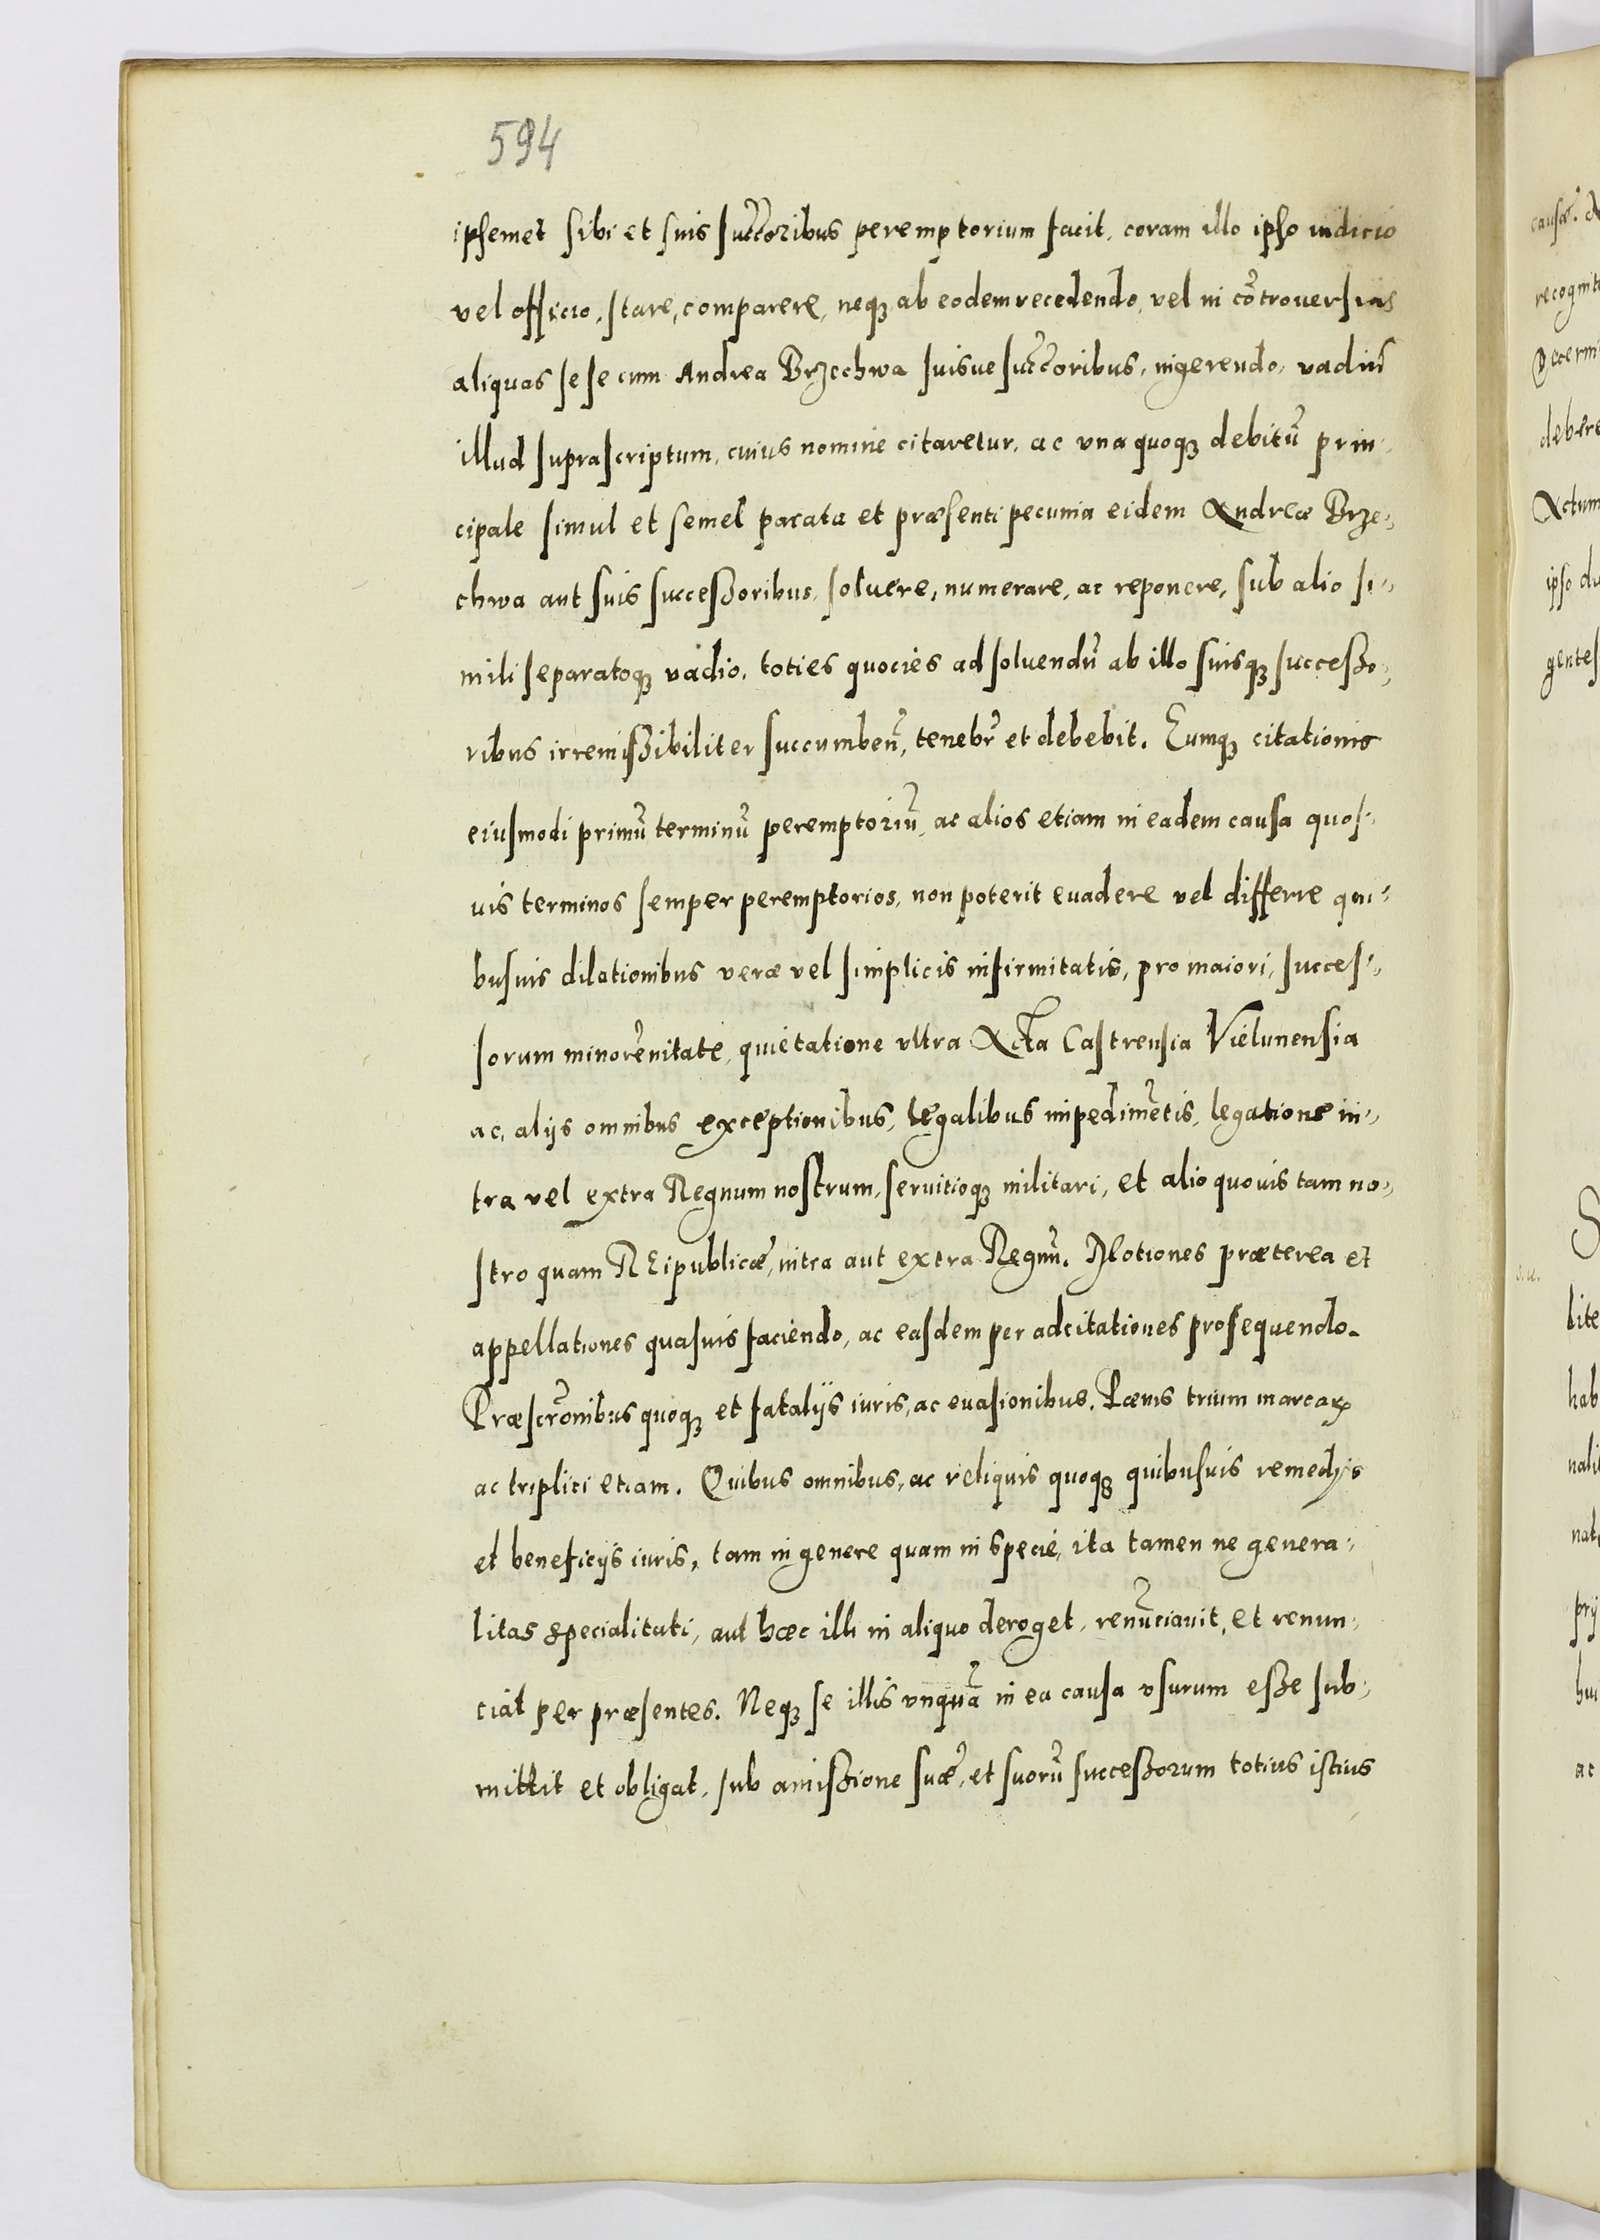 594
ipsemet sibi et suis succ̃oribus peremptorium facit, coram illo ipso iudicio
vel officio, stare, comparere, neqꝫ ab eodem recedendo, vel in cõtrouersias
aliquas sese cum Andrea Brzechwa suisue succ̃oribus, ingerendo, vadiũ
illud suprascriptum, cuius nomine citaretur, ac vna quoqꝫ debitũ prin-
cipale simul et semel parata et præsenti pecunia eidem Andreæ Brze-
chwa aut suis successoribus, soluere, numerare, ac reponere, sub alio si-
mili separatoqꝫ vadio, toties quocies ad soluendũ ab illo suisqꝫ successo-
ribus irremissibiliter succumbeñ, tenebr̃ et debebit. Eumqꝫ citationis
eiusmodi primũ terminũ peremptoriũ, ac alios etiam in eadem causa quos-
uis terminos semper peremptorios, non poterit euadere vel differre qui-
busuis dilationibus veræ vel simplicis infirmitatis, pro maiori, succes-
sorum minorẽnitate, quietatione vltra Acta Castrensia Vielunensia
ac, alijs omnibus exceptionibus, legalibus impedimẽtis, legatione in-
tra vel extra Regnum nostrum, seruitioqꝫ militari, et alio quouis tam no-
stro quam REipublicæ, intra aut extra Regnũ. Motiones præterea et
appellationes quasuis faciendo, ac easdem per adcitationes prosequendo.
Præscr̃onibus quoqꝫ et fatalijs iuris, ac euasionibus. Pœnis trium marcaꝝ
ac triplici etiam. Quibus omnibus, ac reliquis quoqꝫ quibusuis remedijs
et beneficijs iuris, tam in genere quam in specie, ita tamen ne genera-
litas specialitati, aut hæc illi in aliquo deroget, renũciauit, et renun-
ciat per præsentes. Neqꝫ se illis vnquã in ea causa vsurum esse sub-
mittit et obligat, sub amissione suæ, et suorũ successorum totius istius